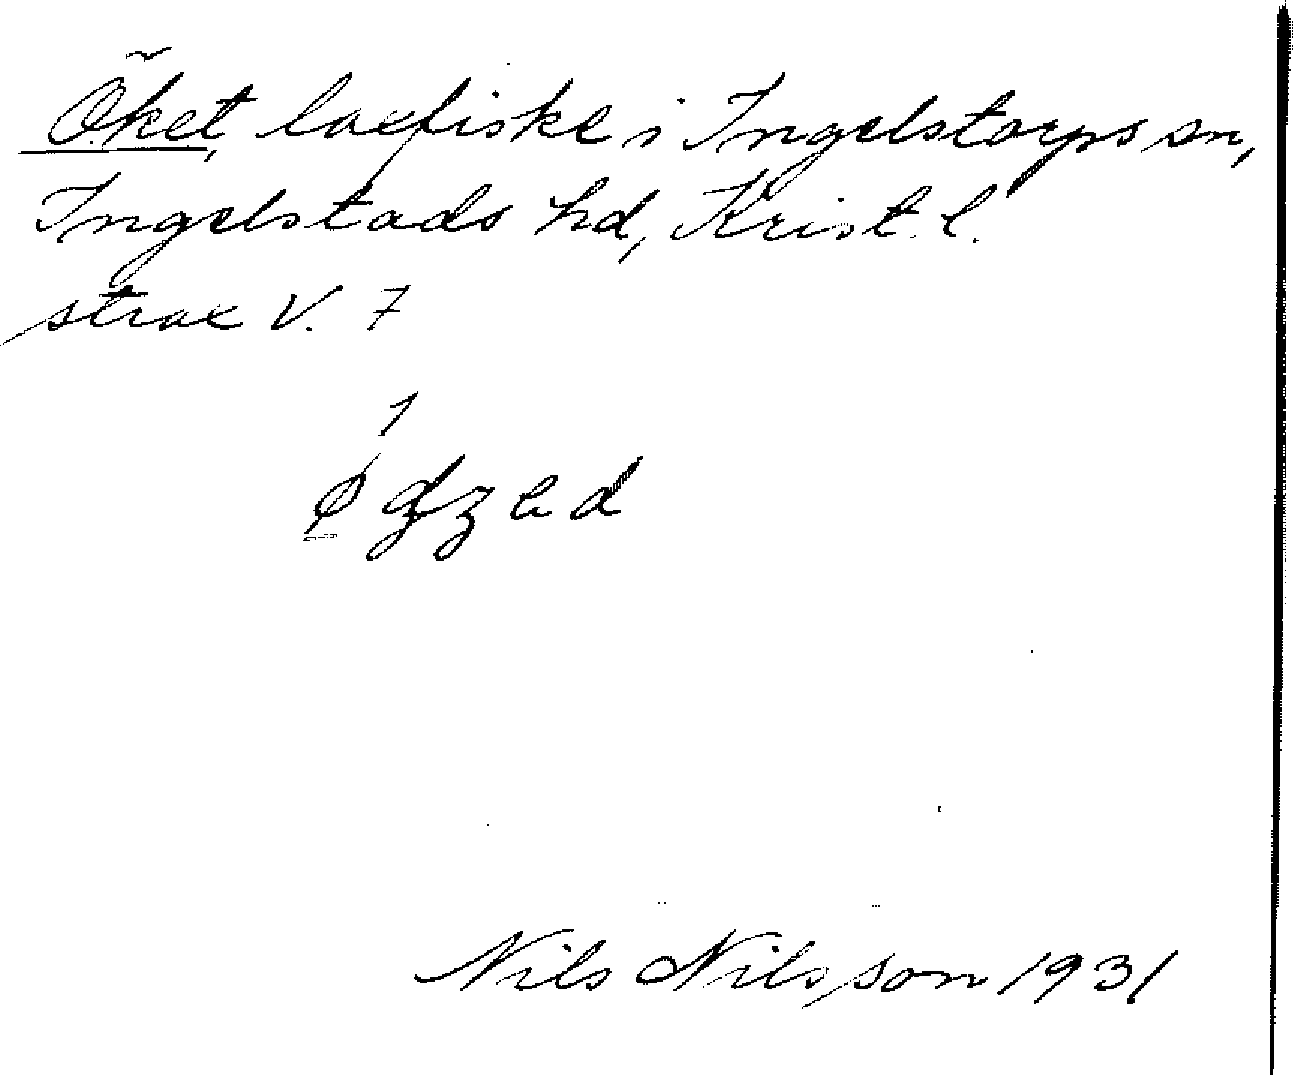 Öket, laxfiske i Ingelstorps sn,
Ingelstads hd, Krist. l.
strax V. 7
1
Nils Nilsson 1931